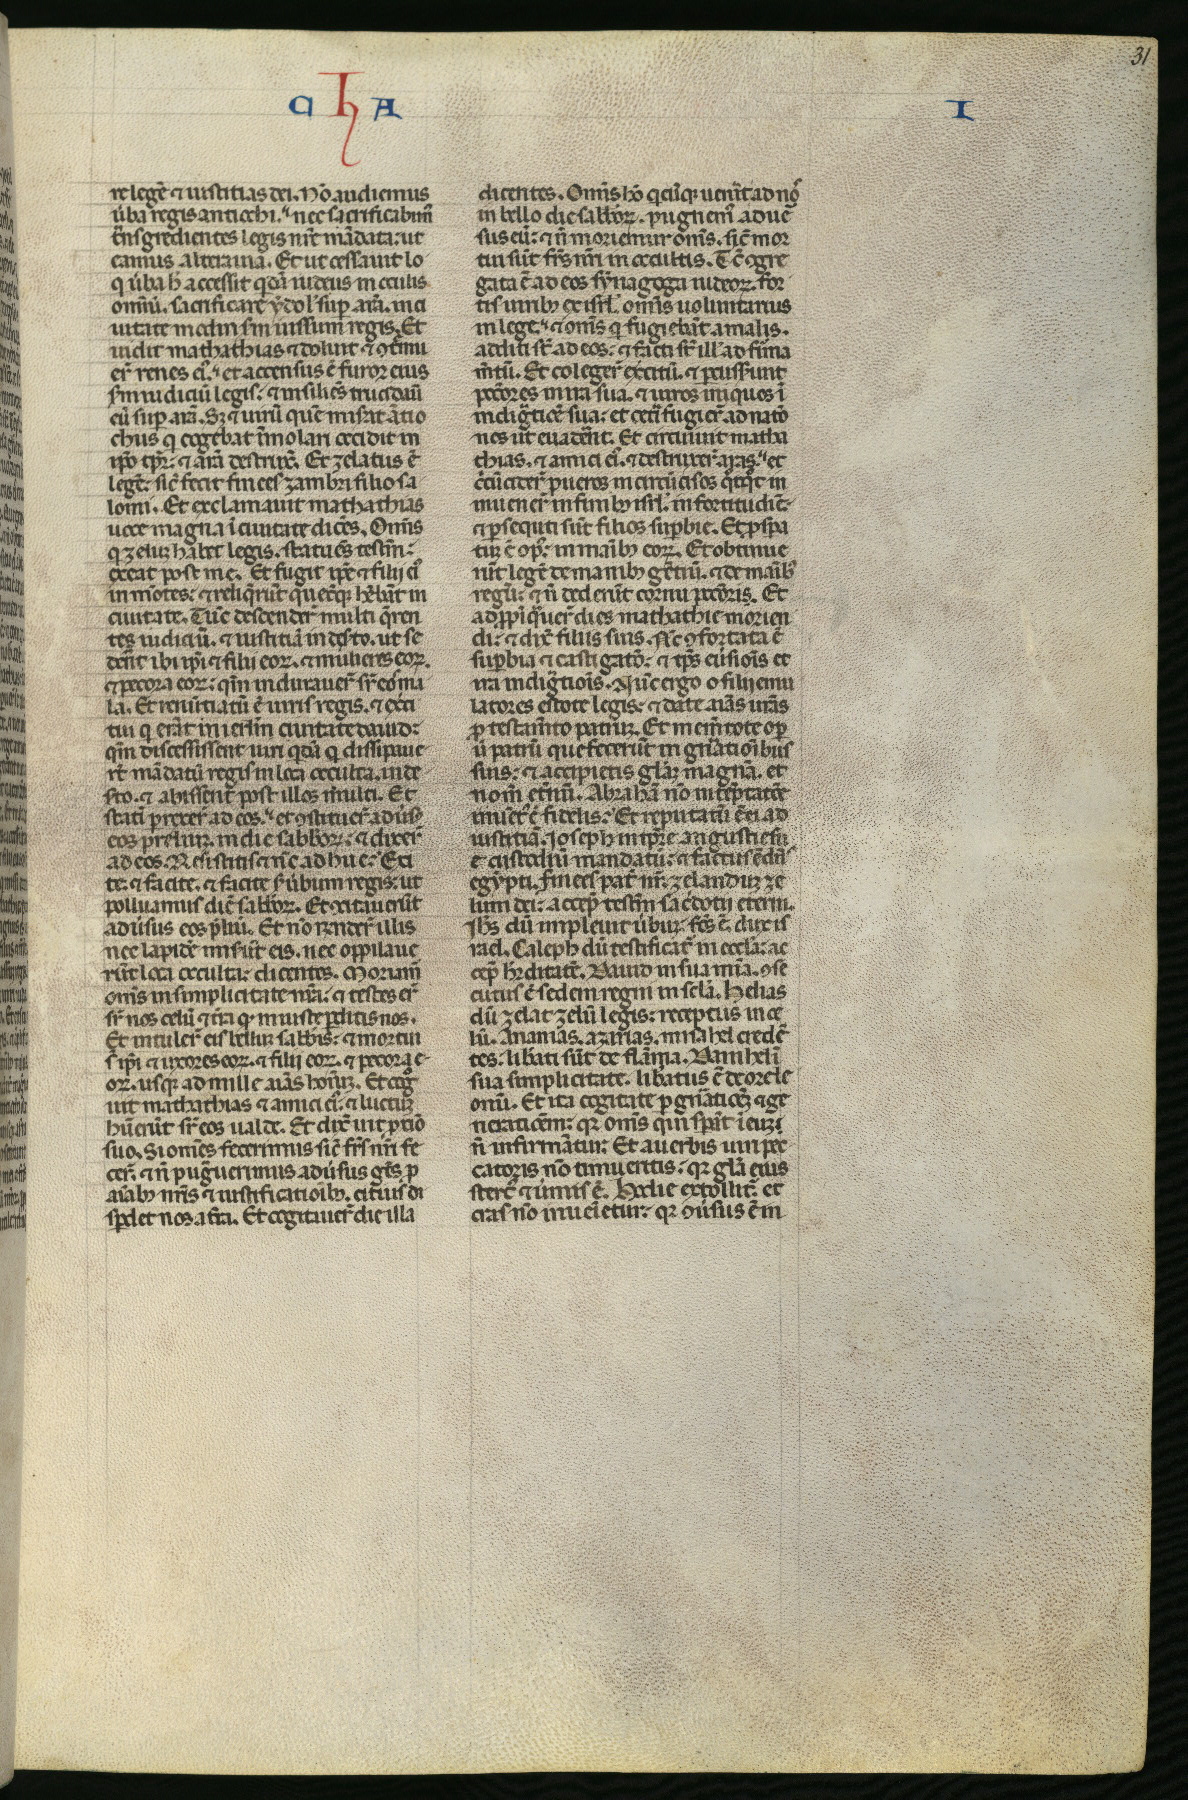 31
C h A
I
re legē ⁊ iusticias dei. Nō audiemus
ūba regis antiochi. nec sacrificabim᷑
t̄nsgredientes legis nr̄e mādata: ut
eamus altera uia. Et ut cessauit lo
q̄ ūba h̄ accessit qdā iudeus in oculis
omniū. sacrificare ydol' sup arā. in ci
uitate modin scdm iussum regis. Et
uidit mathathias ⁊ doluit ⁊ ꝯtremu
er̄ renes ei᷒. et accensus ē furor eius
scdm iudiciū legis: ⁊ insiliēs trucidauit
eū sup arā. Sꝫ ⁊ uirū quē misit antio
chus q cogebat īmolari occidit in
ipo tp̄r: ⁊ arā destruxit. Et zelatus ē
legē: sic̄ fecit finees zambri filio sa
lomi. Et exclamauit mathathias
uoce magna ī ciuitate dicēs. Omīs
q zelum hābet legis. statuēs testm̄:
exeat post me. Et fugit ipe ⁊ filij ei᷒
in mōtes: ⁊ reliqr̄ūt quecūqꝫ habebāt in
ciuitate. Tūc descender̄t multi q̄ren
tes iudiciū. ⁊ iusticiā in desto. ut se
dēnt ibi ipi ⁊ filij eoꝝ. ⁊ mulieres eoꝝ.
⁊ pecora eoꝝ: qm̄ indurauer̄t sr̄ eos ma
la. Et renūtiatū ē uiris regis. ⁊ exerci
tui q erāt in ierlm̄ ciuitate dauid:
qm̄ discessissent uiri qdā q dissipaue
rt̄ mādatū regis in loca occulta. in de
sto. ⁊ abissent post illos multi. Et
statī prexer̄t ad eos. et ꝯstituer̄t adūs᷒
eos prelium in die sabboꝝ: ⁊ dixer̄t
ad eos. Resistitis ⁊ nc̄ adhuc: Exi
te. ⁊ facite. ⁊ facite s ūbum regis: ut
polluamus diē sabboꝝ. Et ꝯcitauerūt
adūsus eos p̄liū. Et nō r̄nder̄t illis
nec lapidē miser̄ūt eis. nec oppilaue
rūt loca occulta: dicentes. Moriam᷑
om̄s in simplicitate nr̄a: ⁊ testes er̄t
sr̄ nos celū ⁊ tr̄a qꝫ iniuste pditis nos.
Et intuler̄t eis bellum sabbis: ⁊ mortui
s̄ ipi ⁊ uxores eoꝝ. ⁊ filij eoꝝ. ⁊ pecora e
oꝝ. usqꝫ ad mille aīas hoīum. Et cog
uit mathathias ⁊ amici ei᷒. ⁊ luctum
hūerūt sr̄ eos ualde. Et dixit uir pxīo
suo. Si omēs fecerimus sic̄ frēs nr̄i fe
cer̄t. ⁊ nō pugnerimus adūsus gēs p
aīabꝫ nr̄is ⁊ iustificatioībꝫ. citius di
spdet nos a tr̄a. Et cogitauer̄t die illa
dicentes. Omīs hō qcūqꝫ uenit ad nos
in bello die sabboꝝ. pugnem᷑ aduē
sus eū: ⁊ nō moriemur omīs. sic̄ mor
tui sūt frēs nr̄i in occultis. Tc̄ ꝯgre
gata ē ad eos synagoga iudeoꝝ. for
tis uiribꝫ ex isrl'. omīs uoluntarius
in lege. ⁊ omīs q fugiebāt a malis.
additi st̄ ad eos: ⁊ facti st̄ ill' ad firma
mtū. Et coleger̄t exercitū. ⁊ pcusserunt
pctores in ira sua. ⁊ uiros iniquos ī
indigtione sua: et ceteri fuger̄t ad natio
nes ut euaderēt. Et circuiuit matha
thias. ⁊ amici ei᷒. ⁊ destruxer̄t aras. et
circūcider̄t pueros incircūcisos qtqt in
inuener̄t in finibꝫ isrl'. in fortitudie
⁊ psequti sūt filios supbie. Et pspa
tum ē opus in manibꝫ eoꝝ. Et obtinue
rūt legē de manibꝫ gētiū. ⁊ de manibꝫ
regū: ⁊ nō dederūt cornu pctoris. Et
adppinquer̄t dies mathathie morien
di: ⁊ dixit filiis suis. Nc̄ ꝯfortata ē
supbia ⁊ castigatio: ⁊ tp̄s eūsionis et
ira indigtionis. Nūc ergo o filij emu
latores estote legis: ⁊ date aīas ur̄as
p testamento patrum. Et mem̄tote op
ū patrū que fecerūt in gnatiōibus
suis: ⁊ accipietis glām magnā. et
nom̄ etnū. Abrahā nō in teptatiōe
inuēt᷒ ē fidelis: Et reputatū ē ei ad
iusticiā. Joseph in tpre angustie su
e custodiuit mandatū: ⁊ factus ē dn̄s
egypti. finees pat̄ nr̄: zelandum ze
lum dei: accep̄ testm̄ sac̄dotij eterni.
Jhs dū impleuit ūbum: fcs̄ ē dux is
rael. Caleph dū testificat᷑ in eccla: ac
cep̄ hr̄ditatē. Dauid in sua mīa. ꝯse
cutus ē sedem regni in scla. Helias
dū zelat zelū legis: receptus in ce
lū. Ananias. azarias. misahel credē
tes: libati sūt de flāma. Danihel ī
sua simplicitate. libatus ē de ore le
onū. Et ita cogitate p gnatioēꝫ ⁊ ge
nerationem: qr omīs qui sperāt ī eum
nō infirmātur: Et a uerbis uiri pec
catoris nō timueritis: qr glā eius
sterc̄ ⁊ uimis ē. Hodie extollit᷑: et
cras nō inueietur: qr ꝯuersus ē in